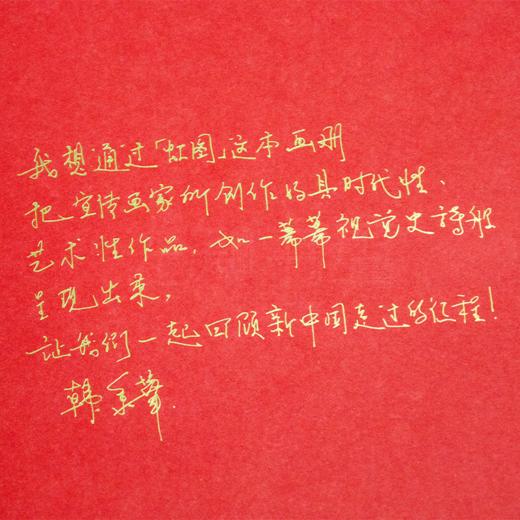 我想通过「虹图」这本画册
把宣传画家所创作的具时代性、
艺术性作品，如一幕幕视觉史詩般
呈现出来，
让我们一起回顾新中国走过的征程！
韩